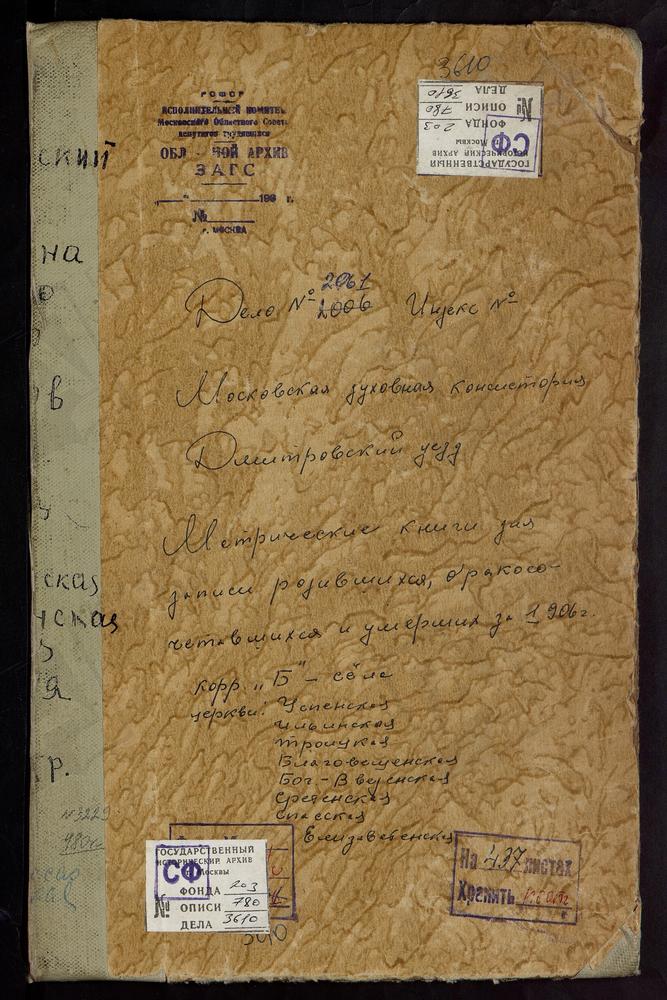 3610
РСФСР
ИСПОЛНИТЕЛЬНЫЙ КОМИТЕТ
Московского Областного Совета
депутатов трудящихся
ОБЛ НОЙ АРХИВ
ЗАГС
196 г.
№
г. МОСКВА
ГОСУДАРСТВЕННЫЙ
ИСТОРИЧЕСКИЙ АРХИВ
г. Москвы
СФ
ФОНДА 203
№ ОПИСИ 780
ДЕЛА 3610
ский
на
о
в
ская
ская
я
гр.
Дело № 2061 2006 Индекс №
Московская духовная консистория
Дмитровский уезд
Метрические книги для
записи родившихся, бракосо-
четавшихся и умерших за 1906 г.
корр „Б" – сёла
церкви: Успенская
Ильинская
Троицкая
Благовещенская
Бог-Введенская
Сретенская
Спасская
Елизаветенская
ГОСУДАРСТВЕННЫЙ
ИСТОРИЧЕСКИЙ АРХИВ
г. Москвы
СФ
ФОНДА 203
№ ОПИСИ 780
ДЕЛА 3610
На 437 листах
Хранить